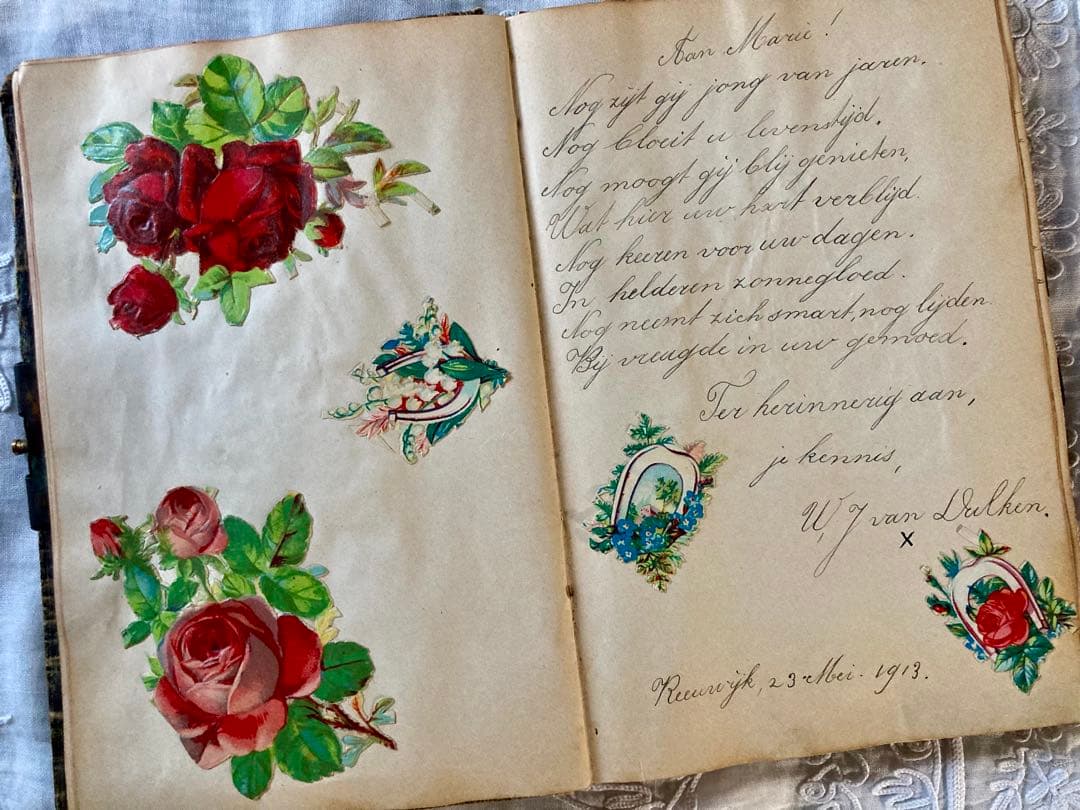 Aan Marie!
Nog zijt gij jong van jaren.
Nog bloeit u levenstijd.
Nog moogt gij blij genieten,
Wat hier uw hart verblijd.
Nog keeren voor uw dagen.
In helderen zonnegloed.
Nog neemt zich smart, nog lijden.
Bij vreugde in uw gemoed.
Ter herinnerig aan,
je kennis,
W, J van Dulken.
x
Reeuwijk, 23 Mei. 1913.